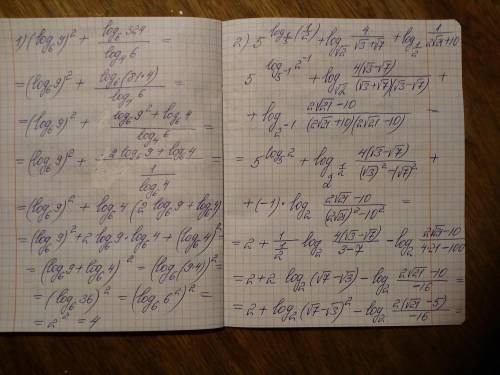 1) (log₆9)² + log₆324 / log₄6 =
= (log₆9)² + log₆(81·4) / log₄6 =
= (log₆9)² + (log₆9² + log₆4) / log₄6 =
= (log₆9)² + (2 log₆9 + log₆4) / (1 / log₆4) =
= (log₆9)² + log₆4 (2 log₆9 + log₆4)
= (log₆9)² + 2 log₆9 · log₆4 + (log₆4)² =
= (log₆9 + log₆4)² = (log₆(9·4))² =
= (log₆36)² = (log₆6²)² =
= 2² = 4
2) 5^(log_(1/5)(1/2)) + log_√2 4/(√3+√7) + log_(1/2) 1/(2√21+10)
5^(log_(5⁻¹) 2⁻¹) + log_√2 4(√3-√7)/((√3+√7)(√3-√7)) +
+ log_(2⁻¹) (2√21-10)/((2√21+10)(2√21-10)) =
= 5^(log₅2) + log_(2^(1/2)) 4(√3-√7)/((√3)²-(√7)²) +
+ (-1)·log₂ (2√21-10)/((2√21)²-10²) =
= 2 + 1/(1/2) log₂ 4(√3-√7)/(3-7) - log₂ (2√21-10)/(4·21-100)
= 2 + 2 log₂(√7-√3) - log₂ (2√21-10)/(-16) =
= 2 + log₂(√7-√3)² - log₂ 2(√21-5)/(-16) =